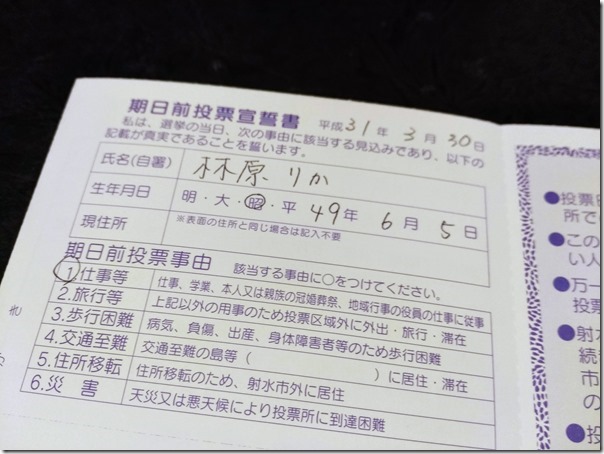 期日前投票宣誓書 平成31年3月30日
私は、選挙の当日、次の事由に該当する見込みであり、以下の
記載が真実であることを誓います。
氏名(自署) 林原りか
生年月日 明・大・昭・平 49年 6月 5日
現住所 ※表面の住所と同じ場合は記入不要
期日前投票事由 該当する事由に○をつけてください。
1.仕事等 仕事、学業、本人又は親族の冠婚葬祭、地域行事の役員の仕事に従事
2.旅行等 上記以外の用事のため投票区域外に外出・旅行・滞在
3.歩行困難 病気、負傷、出産、身体障害者等のため歩行困難
4.交通至難 交通至難の島等( )に居住・滞在
5.住所移転 住所移転のため、射水市外に居住
6.災 害 天災又は悪天候により投票所に到達困難
●投票
所で
●この
い人
●万一
投票
●射水
続き
市
の
●投